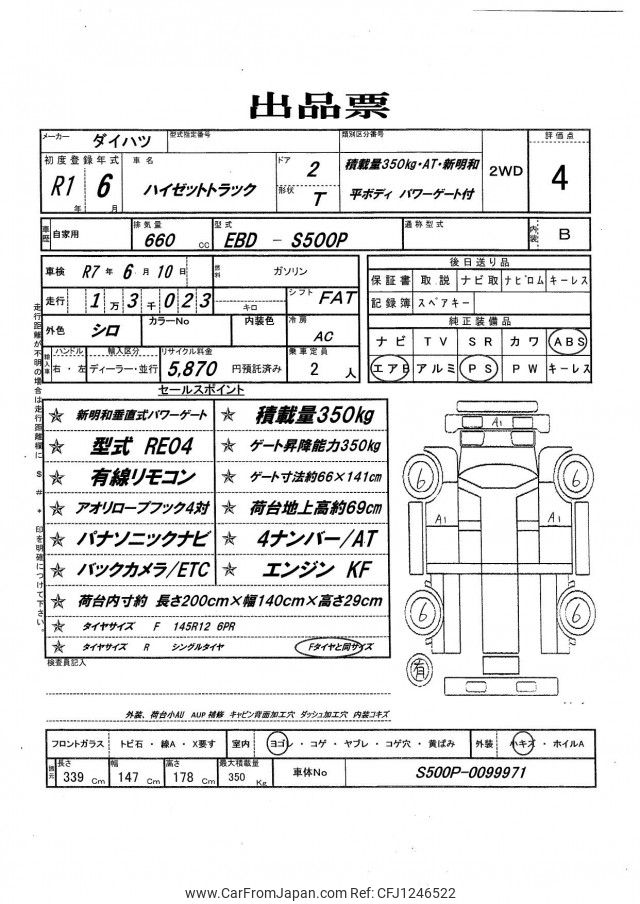 出品票
メーカー ダイハツ 型式指定番号 類別区分番号 評価点
初度登録年式 車名 ドア 2 積載量350kg・AT・新明和 2WD 4
R1年 6月 ハイゼットトラック 形状 T 平ボディ パワーゲート付
車歴 自家用 排気量 660 cc 型式 EBD - S500P 通称型式 内装 B
車検 R7年 6月 10日 燃料 ガソリン 後日送り品
走行 1万3千023 キロ シフト FAT 保証書 取説 ナビ取 ナビロム キーレス
記録簿 スペアキー
外色 シロ カラーNo 内装色 冷房 AC 純正装備品
ナビ TV SR カワ ABS
輸入車 ハンドル 右・左 輸入区分 ディーラー・並行 リサイクル料金 5,870 円預託済み 乗車定員 2人 エアB アルミ PS PW キーレス
セールスポイント
★ 新明和垂直式パワーゲート ★ 積載量350kg
★ 型式 RE04 ★ ゲート昇降能力350kg
★ 有線リモコン ★ ゲート寸法約66×141cm
★ アオリロープフック4対 ★ 荷台地上高約69cm
★ パナソニックナビ ★ 4ナンバー/AT
★ バックカメラ/ETC ★ エンジン KF
★ 荷台内寸約 長さ200cm×幅140cm×高さ29cm
★ タイヤサイズ F 145R12 6PR
★ タイヤサイズ R シングルタイヤ Fタイヤと同サイズ
走行距離が不明の場合は走行距離欄に $ # * 印を明確につけて下さい。
A1
6 6
A1 A1
6 6
有
検査員記入
外装、荷台小AU AUP補修 キャビン背面加工穴 ダッシュ加工穴 内装コキズ
フロントガラス トビ石・線A・X要す 室内 ヨゴレ・コゲ・ヤブレ・コゲ穴・黄ばみ 外装 小キズ・ホイルA
長さ 339 Cm 幅 147 Cm 高さ 178 Cm 最大積載量 350 Kg 車体No S500P-0099971
www.CarFromJapan.com Ref: CFJ1246522